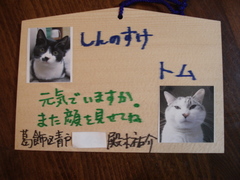 しんのすけ
トム
元気でいますか。
また顔を見せてね
葛飾区青戸 殿本祐介